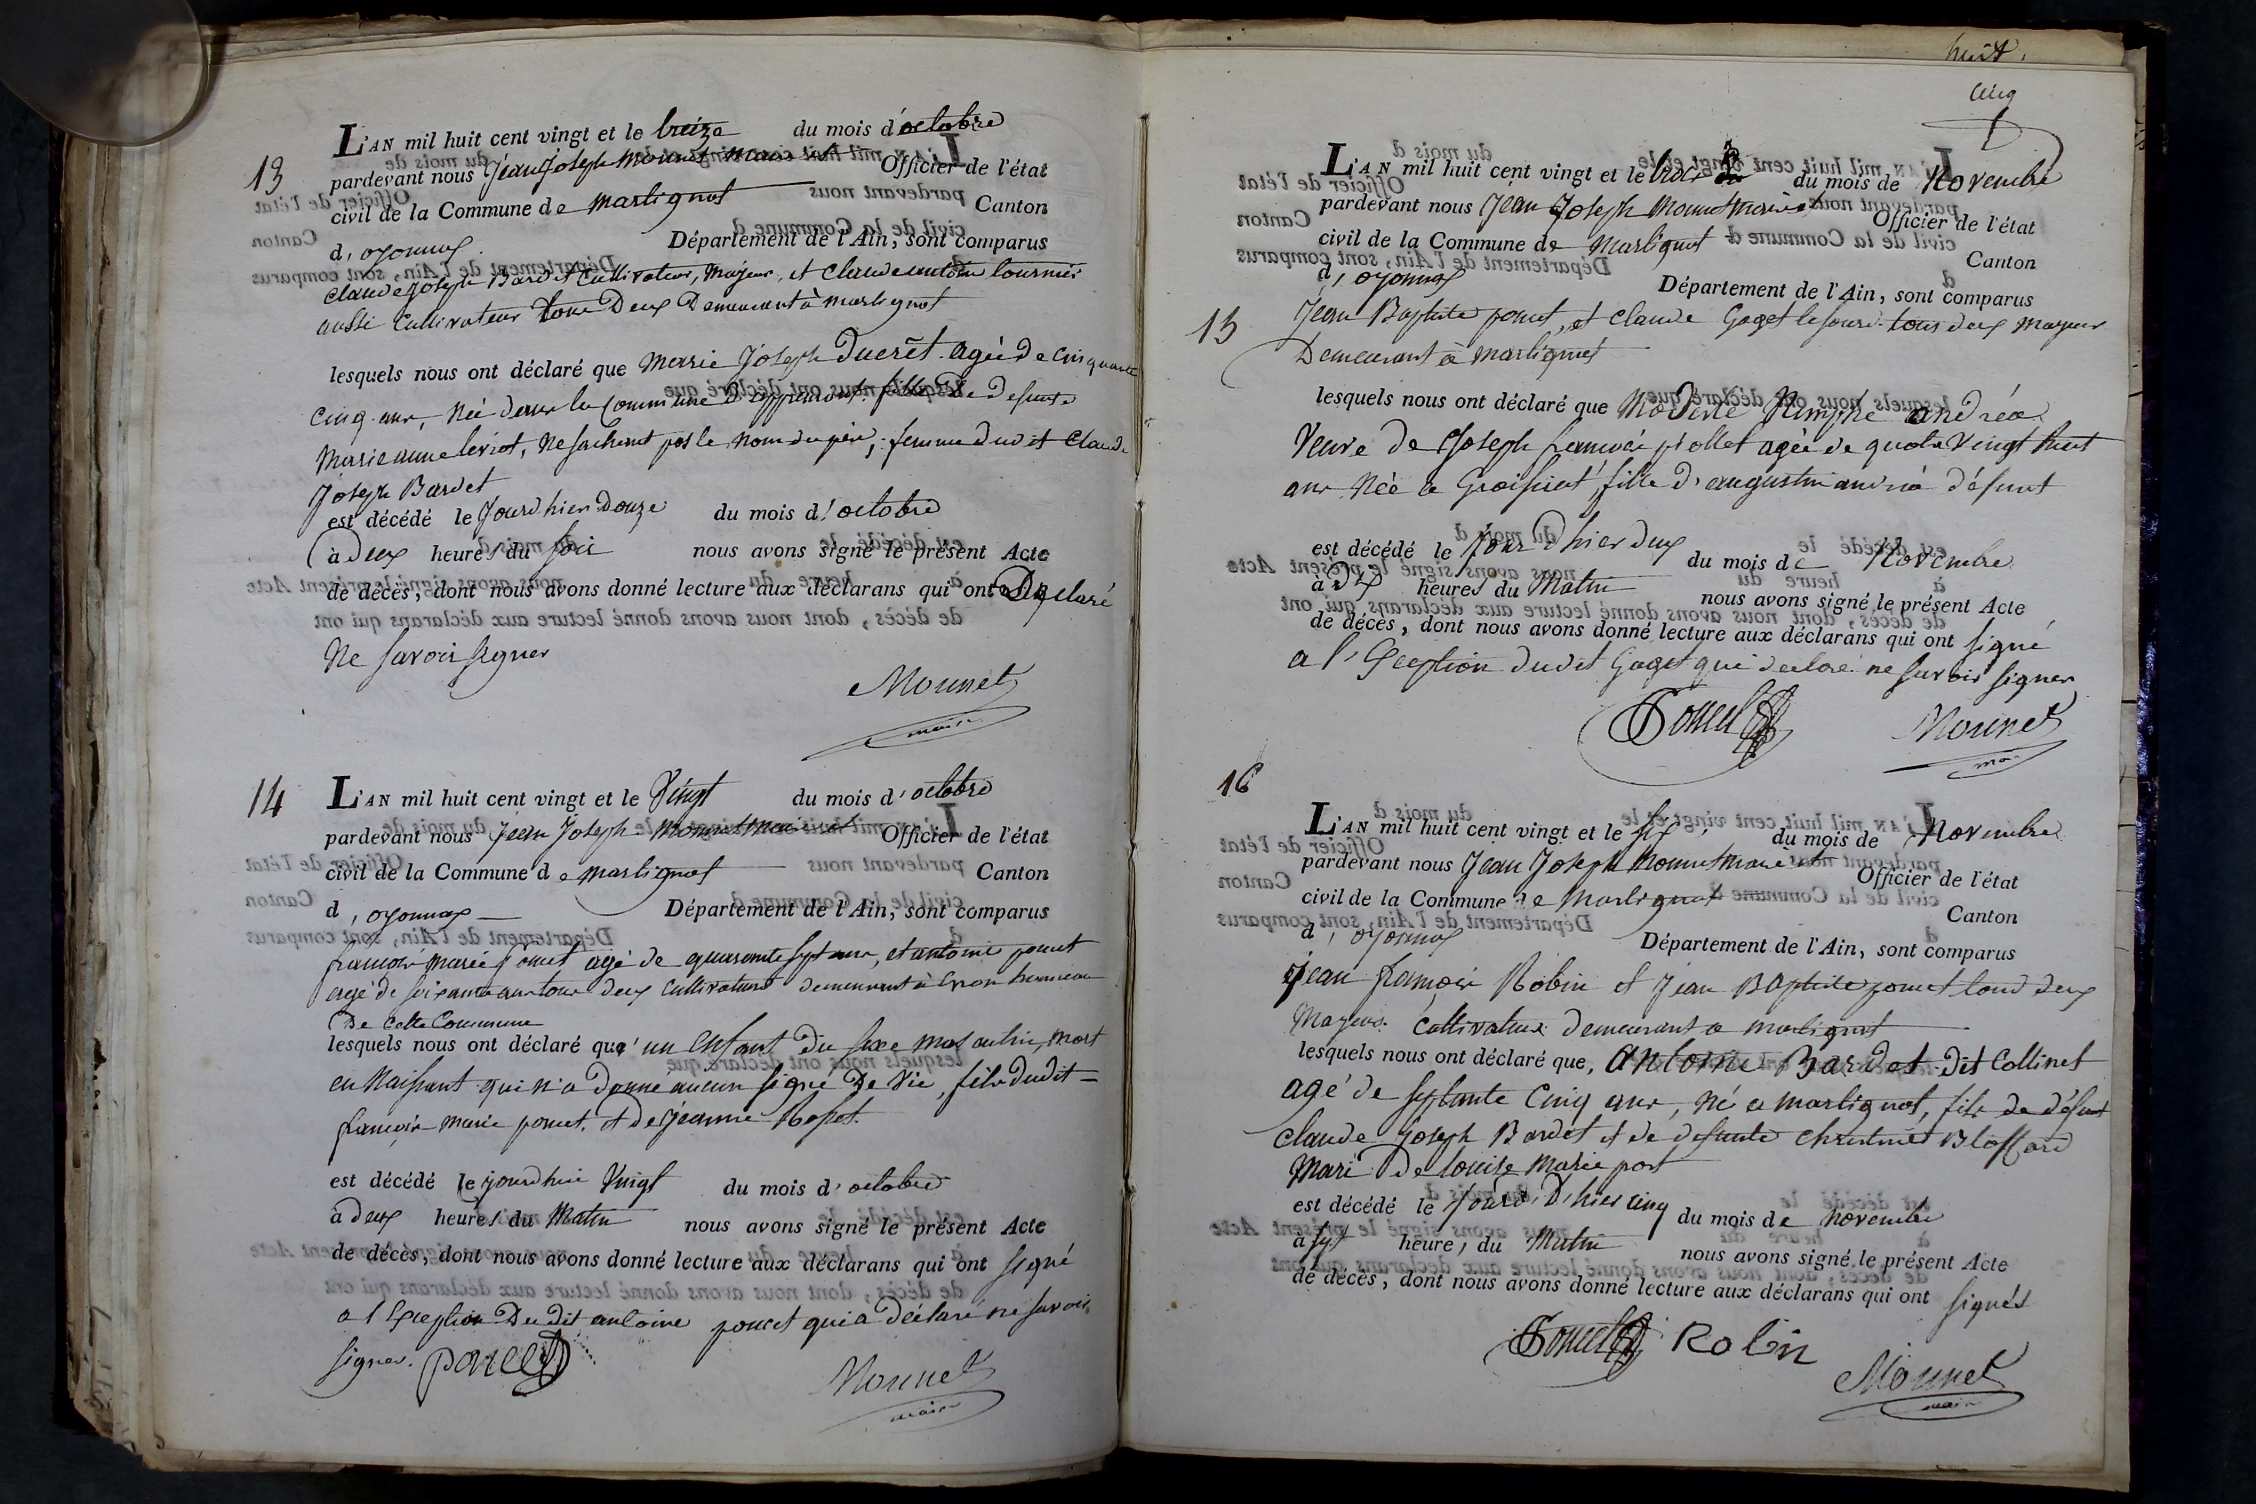 13
L'AN mil huit cent vingt et le treize du mois d'octobre
pardevant nous Jean Joseph Mounet maire et Officier de l'état
civil de la Commune de Martignat Canton
d'oyonnax Département de l'Ain, sont comparus
Claude Joseph Bardet Cultivateur, Majeur, et Claude antoine tournier
aussi Cultivateur tous Deux Demeurant à martignat
lesquels nous ont déclaré que Marie Joseph Ducrêt agée de Cinquante
Cinq ans, Née dans la Commune D'appremont fille De Defunte
Marie anne leriot, Ne sachant pas le nom du père, femme dudit Claude
Joseph Bardet
est décédé le Jourdhier Douze du mois d'octobre
à Deux heures du soir nous avons signé le présent Acte
de décès, dont nous avons donné lecture aux déclarans qui ont Declaré
Ne savoir signer
Mounet
maire
14
L'AN mil huit cent vingt et le Vingt du mois d'octobre
pardevant nous Jean Joseph Mounet Maire et Officier de l'état
civil de la Commune de martignat Canton
d'oyonnax Département de l'Ain, sont comparus
francois marie poncet agé de quarante sept ans, et antoine poncet
agé de soixante ans tous deux Cultivateurs demeurant à hameau
De cette Commune
lesquels nous ont déclaré qu'un Enfant Du sexe masculin, mort
en Naissant qui n'a donne aucun signé De Vie, fils dudit
francois marie poncet et de jeanne Rosset
est décédé le jourdhui Vingt du mois d'octobre
à deux heures du Matin nous avons signé le présent Acte
de décès, dont nous avons donné lecture aux déclarans qui ont signé
a l'Exception Du dit antoine poncet qui a déclaré ne savoir
signer. poncet
Mounet
maire
huit
Cinq
L'AN mil huit cent vingt et le trois du mois de Novembre
pardevant nous Jean Joseph Mounet maire et Officier de l'état
civil de la Commune de Martignat Canton
d'oyonnax Département de l'Ain, sont comparus
15
Jean Baptiste poncet, et Claude Gaget le sourd tous deux Majeur
Demeurant à martignat
lesquels nous ont déclaré que Modeste Nimphe andréa
Veuve de Joseph francois piollet agée de quatre Vingt huit
ans Née a Groissiat, fille d'augustin andréa défunt
est décédé le Jour D'hier deux du mois de Novembre
à Dix heures du Matin nous avons signé le présent Acte
de décès, dont nous avons donné lecture aux déclarans qui ont signé
a l'Exception dudit Gaget qui declare ne savoir signer
Poncet
Mounet
16
L'AN mil huit cent vingt et le six du mois de Novembre
pardevant nous Jean Joseph Mounet maire et Officier de l'état
civil de la Commune de Martignat Canton
d'oyonnax Département de l'Ain, sont comparus
jean françois Robin et Jean Baptiste poncet tous deux
Majeurs Cultivateurs demeurant a martignat
lesquels nous ont déclaré que, antoine Bardet dit Collinet
agé de septante Cinq ans, né a martignat, fils de défunt
Claude Joseph Bardet et de defunte Christine Bloffard
Mari De louise Marie port
est décédé le Jour D'hier cinq du mois de novembre
à sept heures du Matin nous avons signé le présent Acte
de décès, dont nous avons donné lecture aux déclarans qui ont signés
Poncet Robin
Mounet
maire